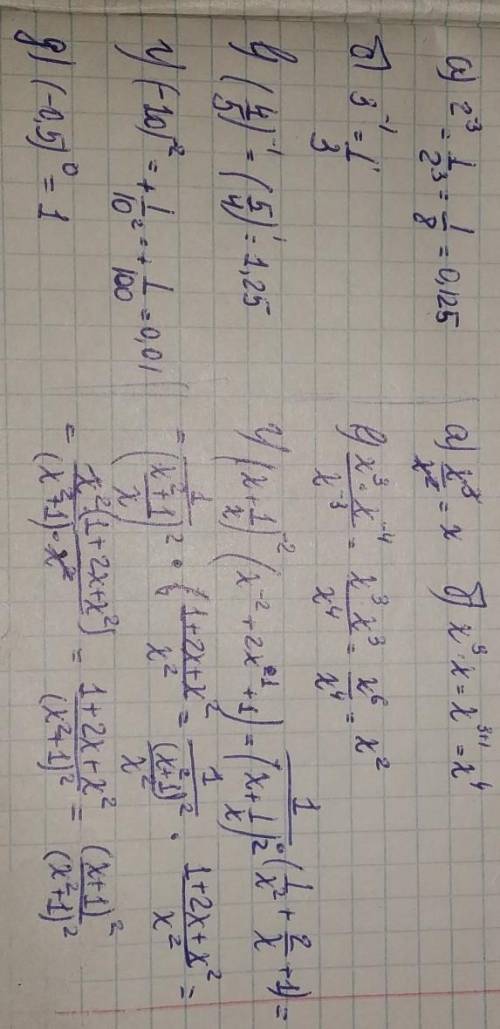 а) 2^-3 = 1/2^3 = 1/8 = 0,125
б) 3^-1 = 1/3
в) (4/5)^-1 = (5/4)^1 = 1,25
г) (-10)^-2 = + 1/10^2 = + 1/100 = 0,01
д) (-0,5)^0 = 1
а) x^3/x^2 = x б) x^3 · x = x^3+1 = x^4
в) x^3 · x^-4/x^-3 = x^3 x^3/x^4 = x^6/x^4 = x^2
г) (x + 1/x)^-2 (x^-2 + 2x^-1 + 1) = 1/(x + 1/x)^2 · (1/x^2 + 2/x + 1) =
= 1/((x^2+1)/x)^2 · (1+2x+x^2/x^2 = 1/((x^2+1)^2/x^2) · 1+2x+x^2/x^2 =
= x^2(1+2x+x^2)/(x^2+1) · x^2 = 1+2x+x^2/(x^2+1)^2 = (x+1)^2/(x^2+1)^2